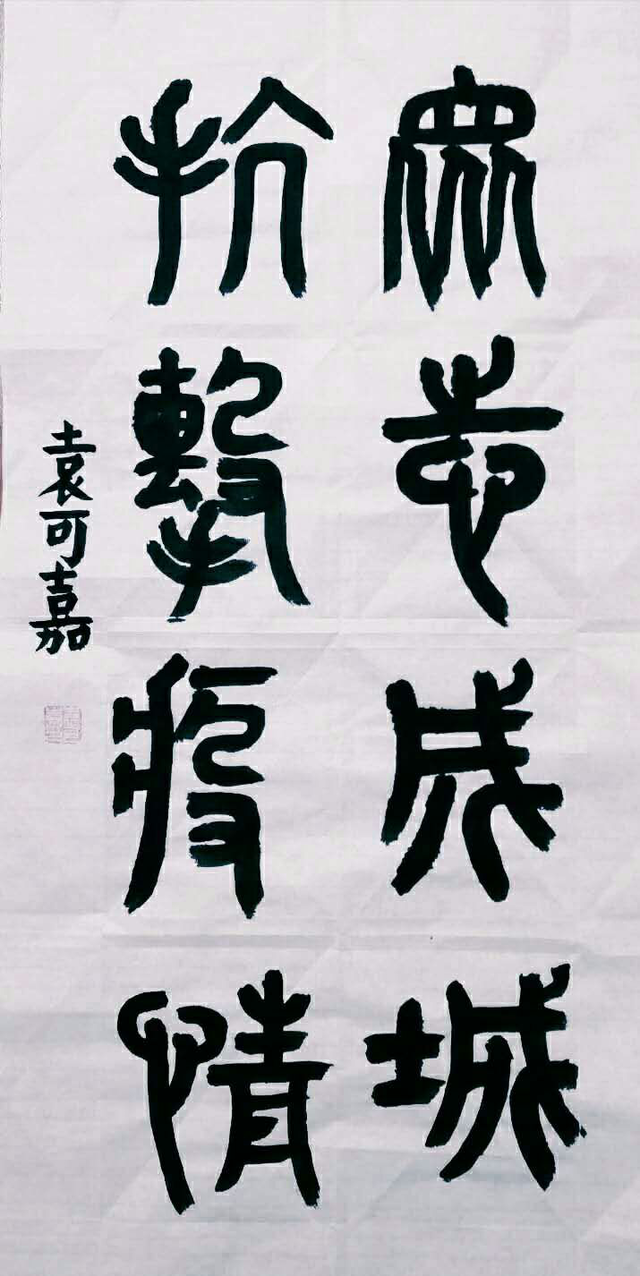 眾志成城
抗擊疫情
袁可嘉